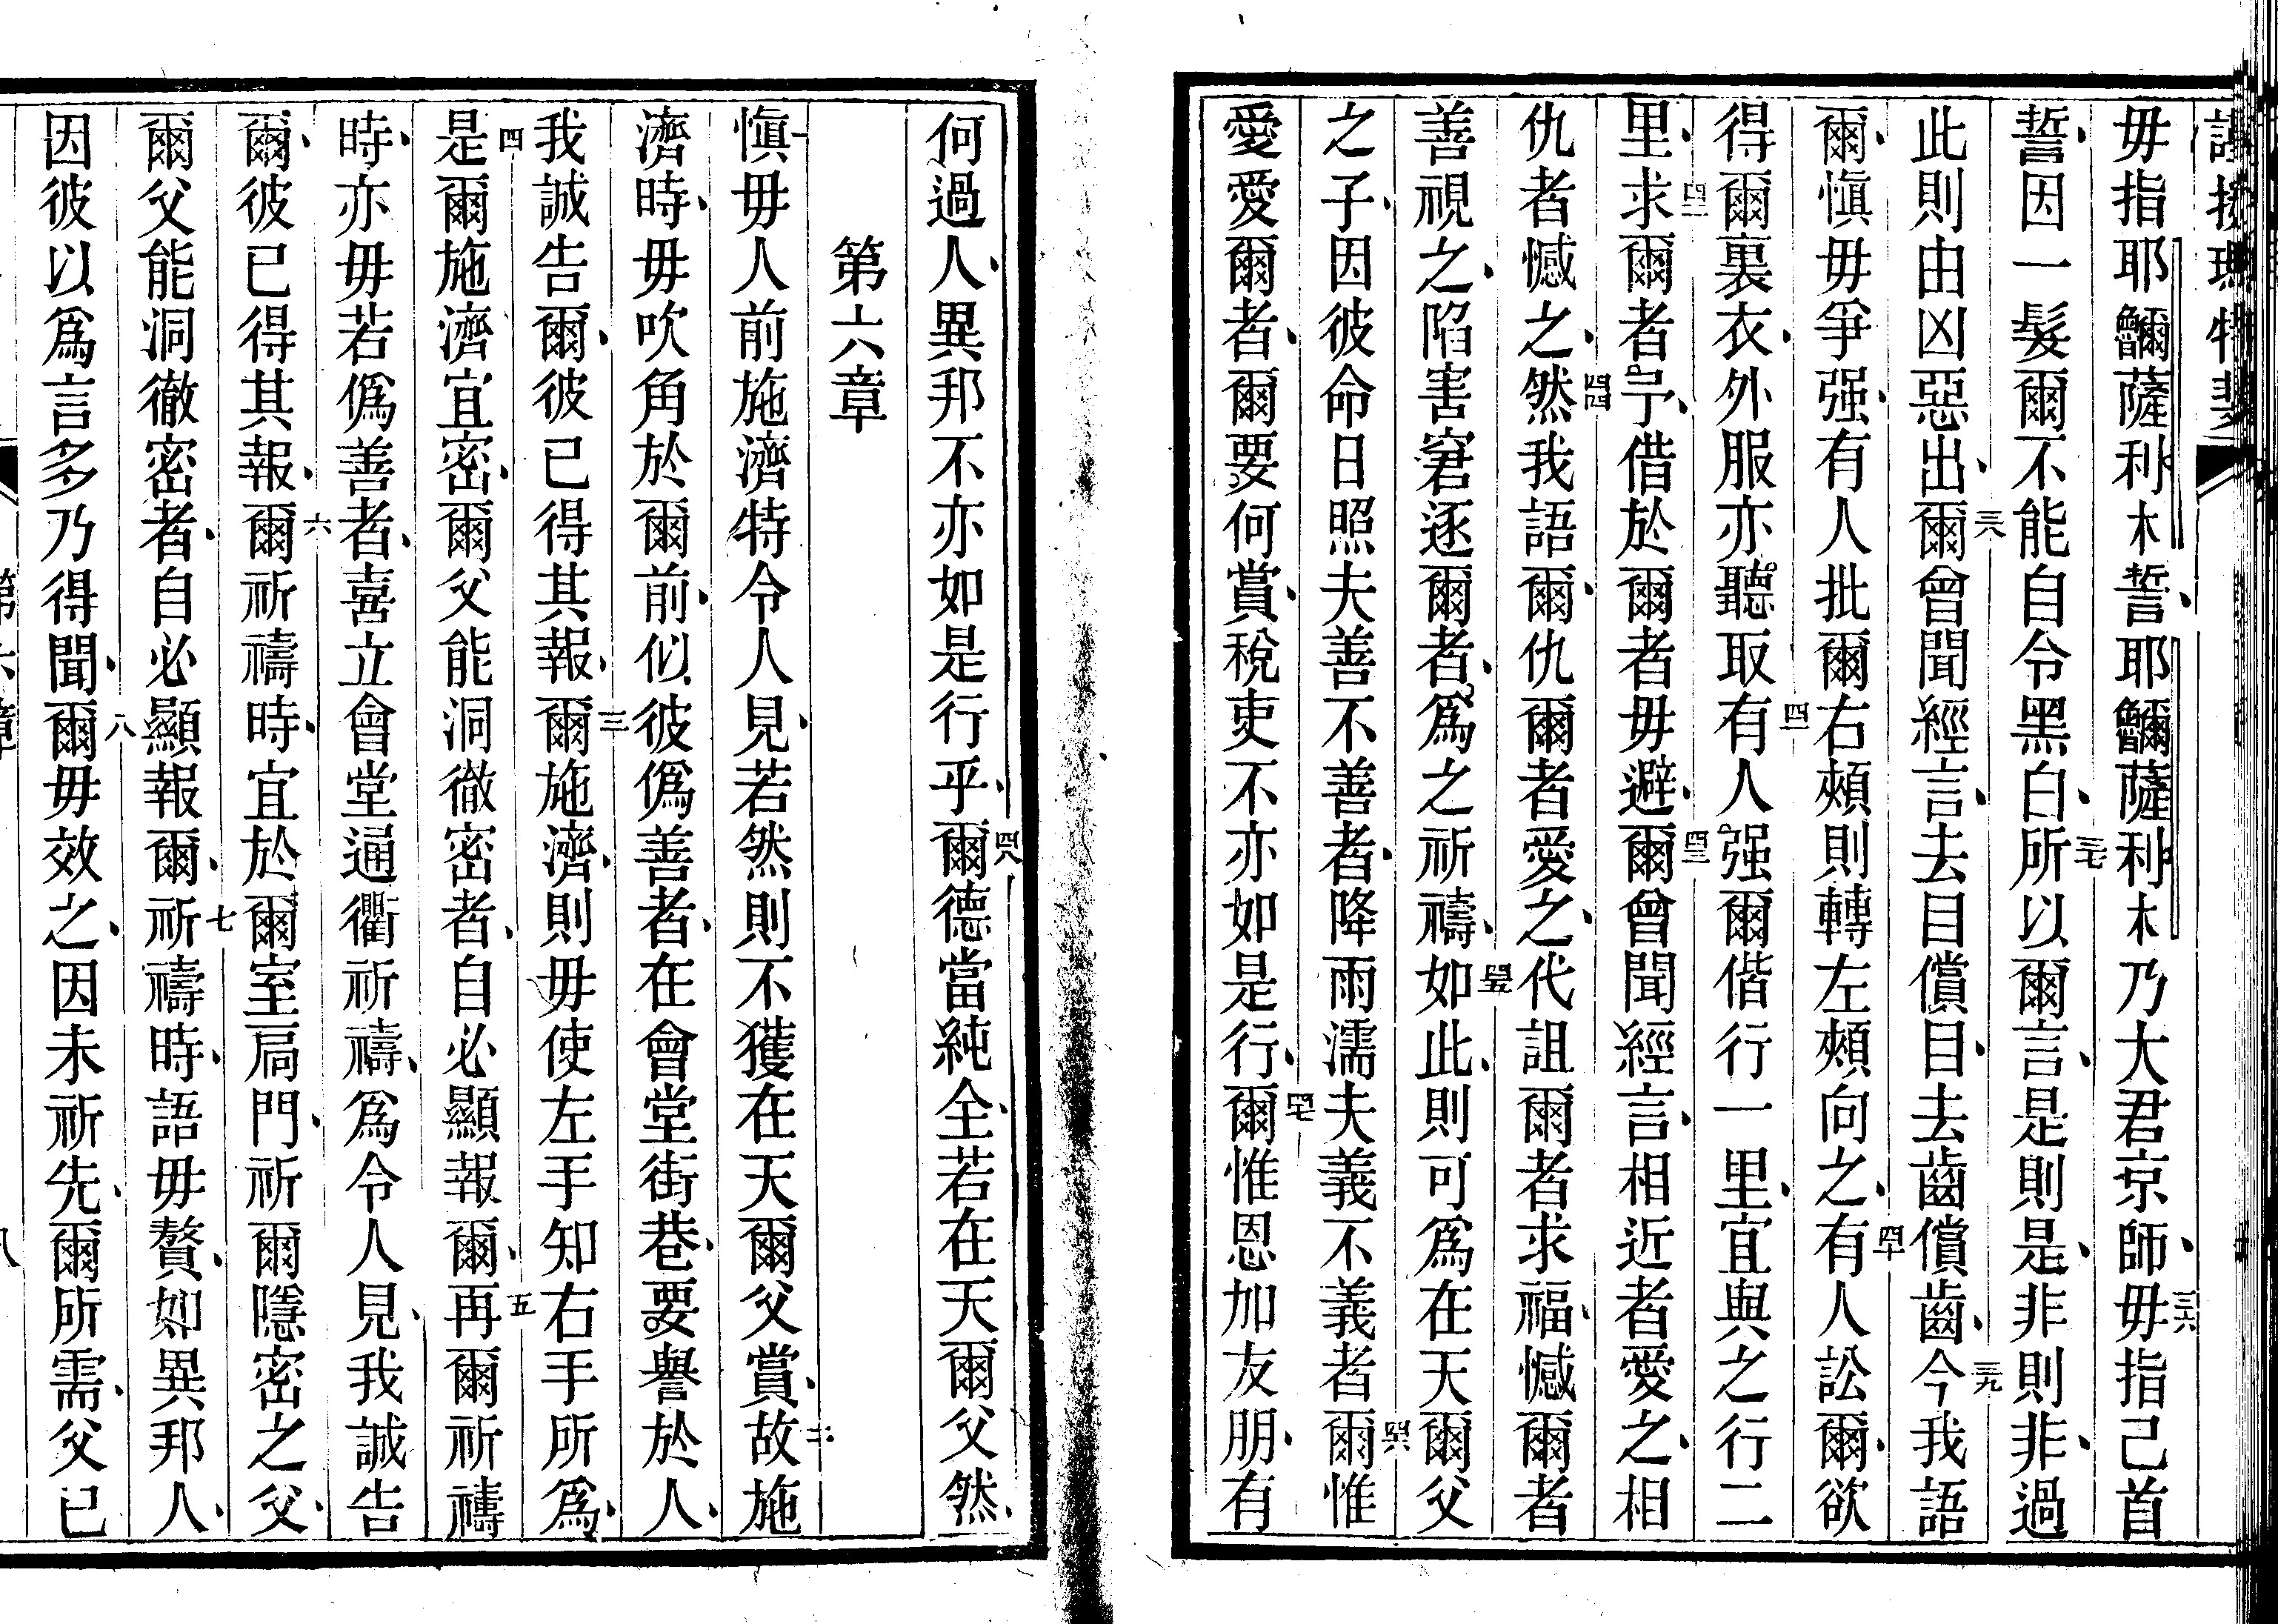 毋指耶𩼣薩利木誓、耶𩼣薩利木乃大君京師、三六毋指己首
誓、因一髮爾不能自令黑白、三七所以爾言、是則是、非則非、過
此則由凶惡出、三八爾曾聞經言、去目償目、去齒償齒、三九今我語
爾、慎毋爭强、有人批爾右頰則轉左頰向之、四十有人訟爾、欲
得爾裏衣、外服亦聽取、四一有人强爾偕行一里、宜與之行二
里、四二求爾者、予、借於爾者毋避、四三爾曾聞經言、相近者愛之、相
仇者憾之、四四然我語爾、仇爾者愛之、代詛爾者求福、憾爾者
善視之、陷害窘逐爾者、爲之祈禱、四五如此、則可爲在天爾父
之子、因彼命日照夫善不善者、降雨濡夫義不義者、四六爾惟
愛愛爾者、爾要何賞、稅吏不亦如是行、四七爾惟恩加友朋、有
何過人、異邦不亦如是行乎、四八爾德當純全、若在天爾父然、
第六章
一慎毋人前施濟特令人見、若然則不獲在天爾父賞、二故施
濟時、毋吹角於爾前、似彼僞善者、在會堂街巷、要譽於人、
我誠告爾、彼已得其報、三爾施濟、則毋使左手知右手所爲、
四是爾施濟宜密、爾父能洞徹密者、自必顯報爾、五再爾祈禱
時、亦毋若僞善者、喜立會堂通衢祈禱、爲令人見、我誠告
爾、彼已得其報、六爾祈禱時、宜於爾室扃門、祈爾隱密之父、
爾父能洞徹密者、自必顯報爾、七祈禱時、語毋贅、如異邦人、
因彼以爲言多乃得聞、八爾毋效之、因未祈先、爾所需、父已